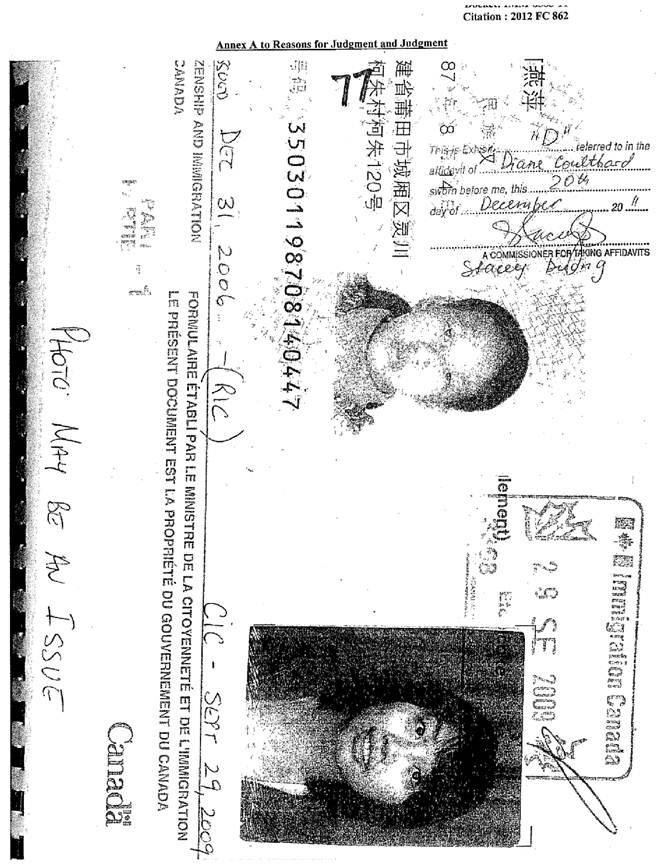 Citation : 2012 FC 862
Annex A to Reasons for Judgment and Judgment
燕萍
民族 汉
87 年 8 14
建省莆田市城厢区灵川
柯朱村柯朱120号
号码 350301198708140447
77
"D"
This is Exhibit referred to in the
affidavit of Diane Coulthard
sworn before me, this 20th
day of December 20 11
A COMMISSIONER FOR TAKING AFFIDAVITS
Stacey
ZENSHIP AND IMMIGRATION
CANADA
DEC 31, 2006 - (RIC)
CIC - SEPT 29, 2009
FORMULAIRE ÉTABLI PAR LE MINISTRE DE LA CITOYENNETÉ ET DE L'IMMIGRATION
LE PRÉSENT DOCUMENT EST LA PROPRIÉTÉ DU GOUVERNEMENT DU CANADA
PART - 1
PHOTO MAY BE AN ISSUE
Canada
lement)
Immigration Canada
29 SE 2009